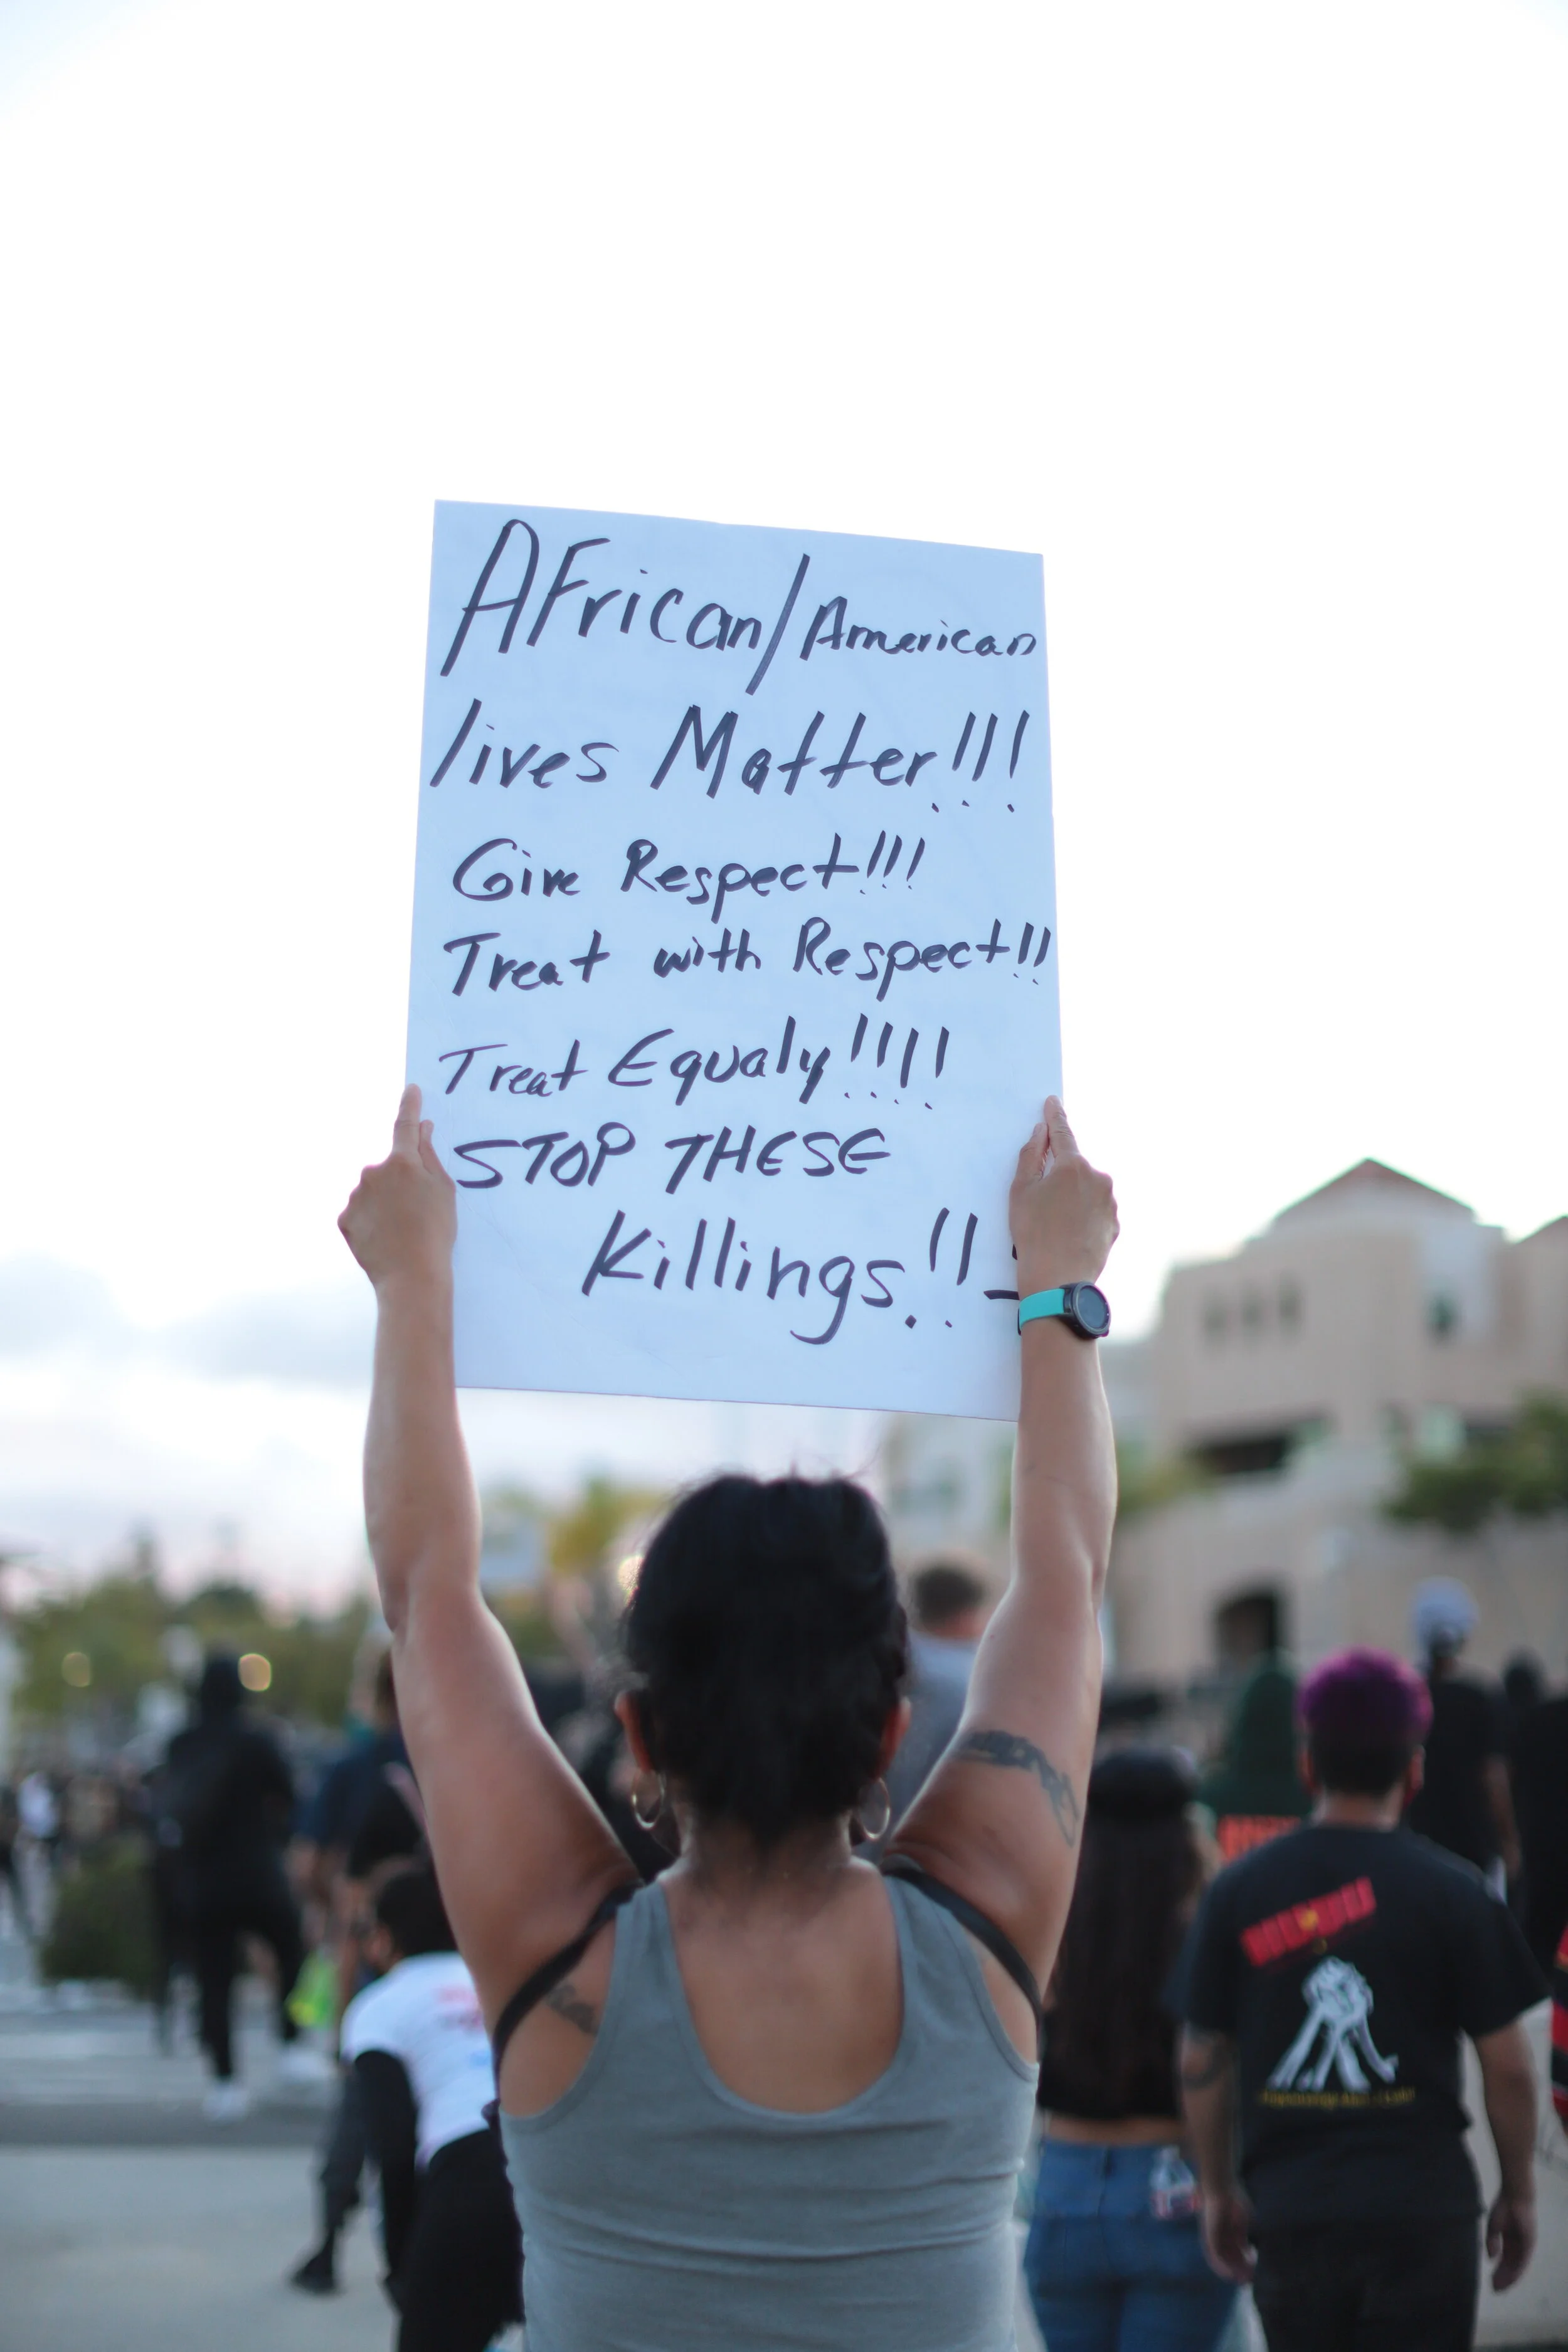 AFrican/American
lives Matter!!!
Give Respect!!!
Treat with Respect!!
Treat Equaly!!!!
STOP THESE
Killings!!